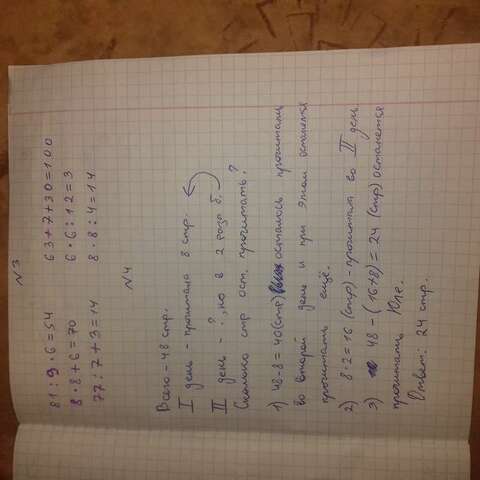 N3
81 : 9 · 6 = 54 63 + 7 + 30 = 100
8 · 8 + 6 = 70 6 · 6 : 12 = 3
77 : 7 + 3 = 14 8 · 8 : 4 = 14
N4
Всего - 48 стр.
I день - прочитала 8 стр.
II день - ?, но в 2 раза б.
Сколько стр ост. прочитать?
1) 48 - 8 = 40 (стр) осталось прочитать
во второй день и при этом останется
прочитать ещё.
2) 8 · 2 = 16 (стр) - прочитала во II день
3) 48 - (16 + 8) = 24 (стр) останется
прочитать Юле.
Ответ: 24 стр.